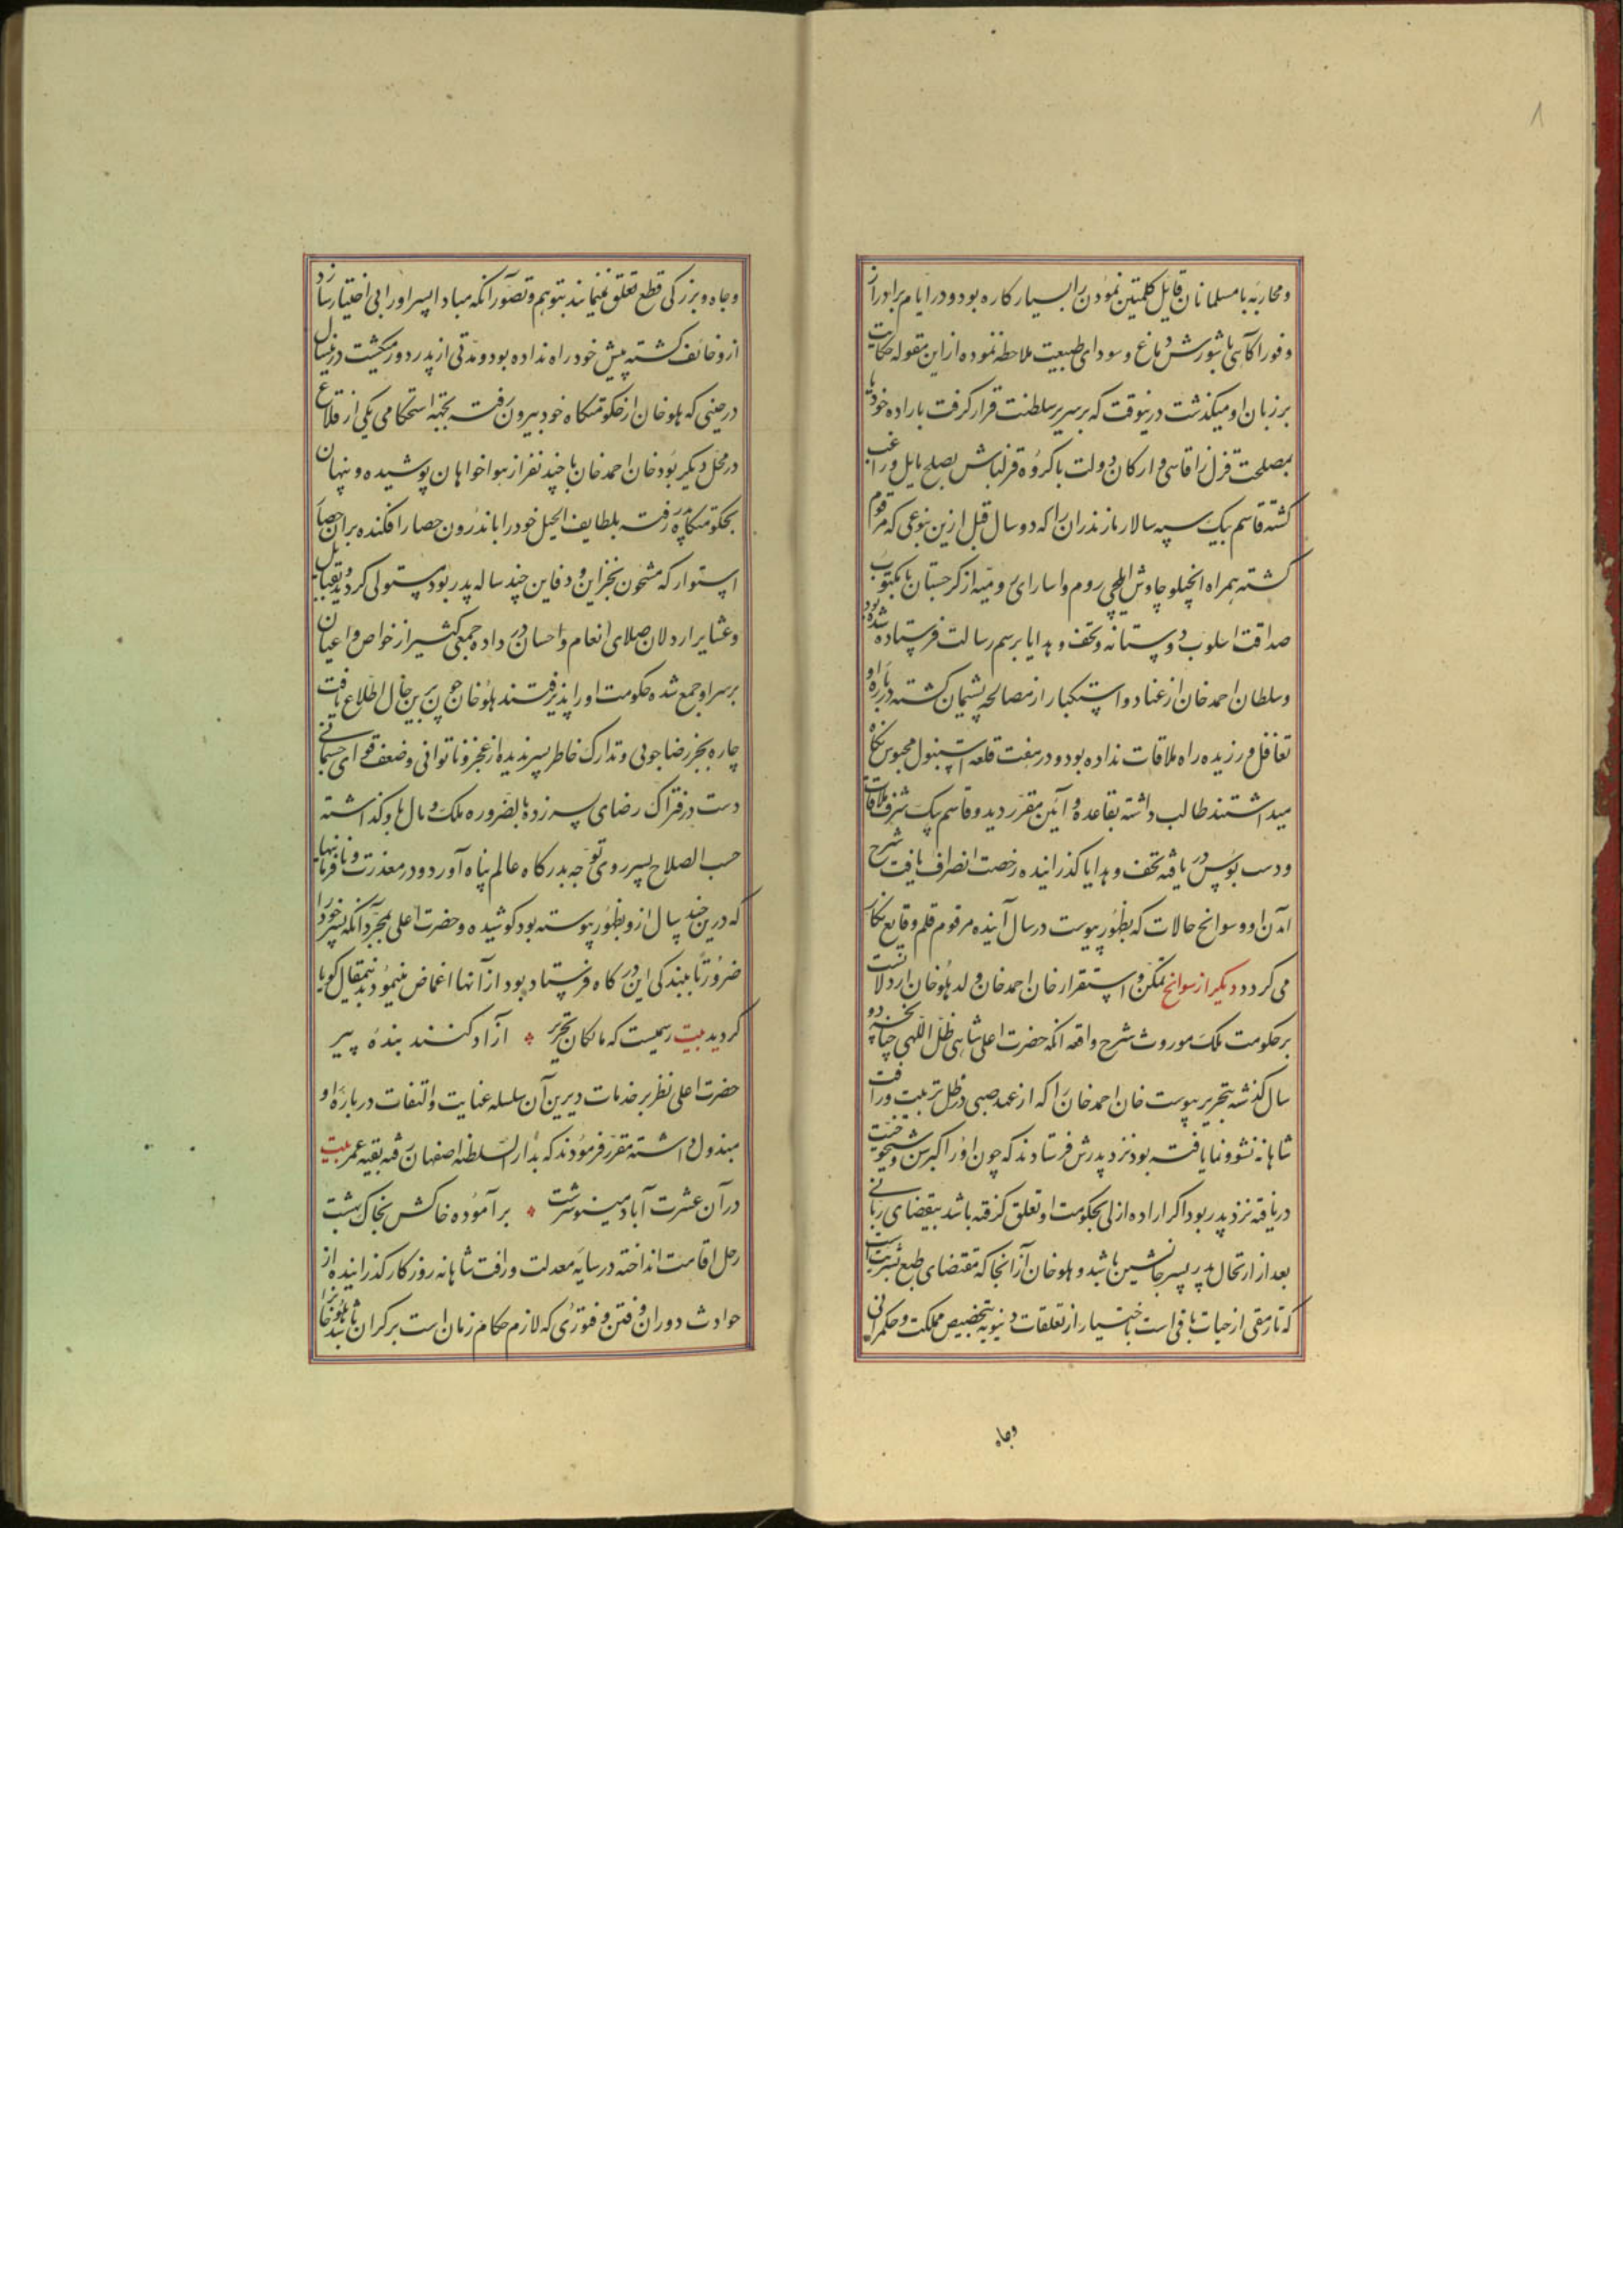 و محاربه با مسلمانان قایل کلمتین نمودن را بسیار کاره بود و در ایام برادر از
وفور آگاهی یا شورش دماغ و سودای طبیعت ملاحظه ننموده از این مقوله حکایت
بر زبان او میگذشت درینوقت که بر سریر سلطنت قرار گرفت باراده خود یا
بمصلحت قزلر اقاسی و ارکان دولت با گروه قزلباش بصلح مایل و راغب
گشته قاسم بیک سپه سالار مازندران را که دو سال قبل ازین بنوعی که مرقوم
گشته همراه انجیلو چاوش ایلچی روم و اسارای رومیه از گرجستان با مکتوب
صداقت اسلوب دوستانه و تحف و هدایا برسم رسالت فرستاده شده بود
و سلطان احمد خان از عناد و استکبار از مصالحه پشیمان گشته درباره او
تغافل ورزیده راه ملاقات نداده بود و در هفت قلعه استنبول محبوس نگاه
میداشتند طالب داشته بقاعده و آئین مقرر دید و قاسم بیک شرف ملاقات
و دست بوس دریافته تحف و هدایا گذرانیده رخصت انصراف یافت شرح
آمدن او و سوانح حالات که بظهور پیوست در سال آینده مرقوم قلم وقایع نگار
می گردد دیگر از سوانح تمکن و استقرار خان احمد خان ولد هلوخان اردلانست
بر حکومت ملک موروث شرح واقعه آنکه حضرت اعلی شاهی ظل اللهی چنانچه در
سال گذشته بتحریر پیوست خان احمد خان را که از عهد صبی در ظل تربیت و رافت
شاهانه نشو و نما یافته بود نزد پدرش فرستادند که چون او را کبر سن و شیخوخیت
دریافته نزد پدر بود اگر اراده ازلی بحکومت او تعلق گرفته باشد بمقتضای ربانی
بعد از ارتحال پدر پسر جانشین باشد و هلوخان از آنجا که مقتضای طبع بشریت است
که تا رمقی از حیات باقی است باختیار از تعلقات دنیویه بتخصیص مملکت و حکمرانی
وجاه
و جاه و بزرگی قطع تعلق نمینمایند بتوهم و تصور آنکه مبادا پسر او را بی اختیار سازد
ازو خائف گشته پیش خود راه نداده بود و مدتی از پدر دور میگشت درینسال
در حینی که هلوخان از حکومتگاه خود بیرون رفته بجهه استحکامی یکی از قلاع
در محل دیگر بود خان احمد خان با چند نفر از هواخواهان پوشیده و پنهان
بحکومتگاه پدر رفته بلطایف الحیل خود را باندرون حصار افکنده بر آن حصار
استوار که مشحون بخزاین و دفاین چند ساله پدر بود مستولی گردید و بقبایل
و عشایر اردلان صلای انعام و احسان در داده جمعی کثیر از خواص و اعیان
بر سر او جمع شده حکومت او را پذیرفتند هلوخان چون برین حال اطلاع یافت
چاره بجز رضاجوئی و تدارک خاطر پسر ندیده از عجز و ناتوانی و ضعف قوای جسمانی
دست در فتراک رضای پسر زده بالضروره ملک و مال باو گذاشته
حسب الصلاح پسر روی توجه بدرگاه عالم پناه آورد و در معذرت نافرمانیها
که درین چند سال ازو بظهور پیوسته بود کوشیده و حضرت اعلی بمجرد آنکه پسر خود را
ضرورتا ببندگی این درگاه فرستاد بود از آنها اغماض نمودند بدینمقال گویا
گردید بیت رسمیست که مالکان تحریر آزاد کنند بنده پیر
حضرت اعلی نظر بر خدمات دیرین آن سلسله عنایت و التفات درباره او
مبذول داشته مقرر فرمودند که بدارالسلطنه اصفهان رفته بقیه عمر بیت
در آن عشرت آباد مینو سرشت برآموده خاکش بخاک بهشت
رحل اقامت انداخته در سایه معدلت و رافت شاهانه روزگار گذرانیده از
حوادث دوران و فتن و فتوری که لازم حکام زمان است بر کران باشد هلوخان را